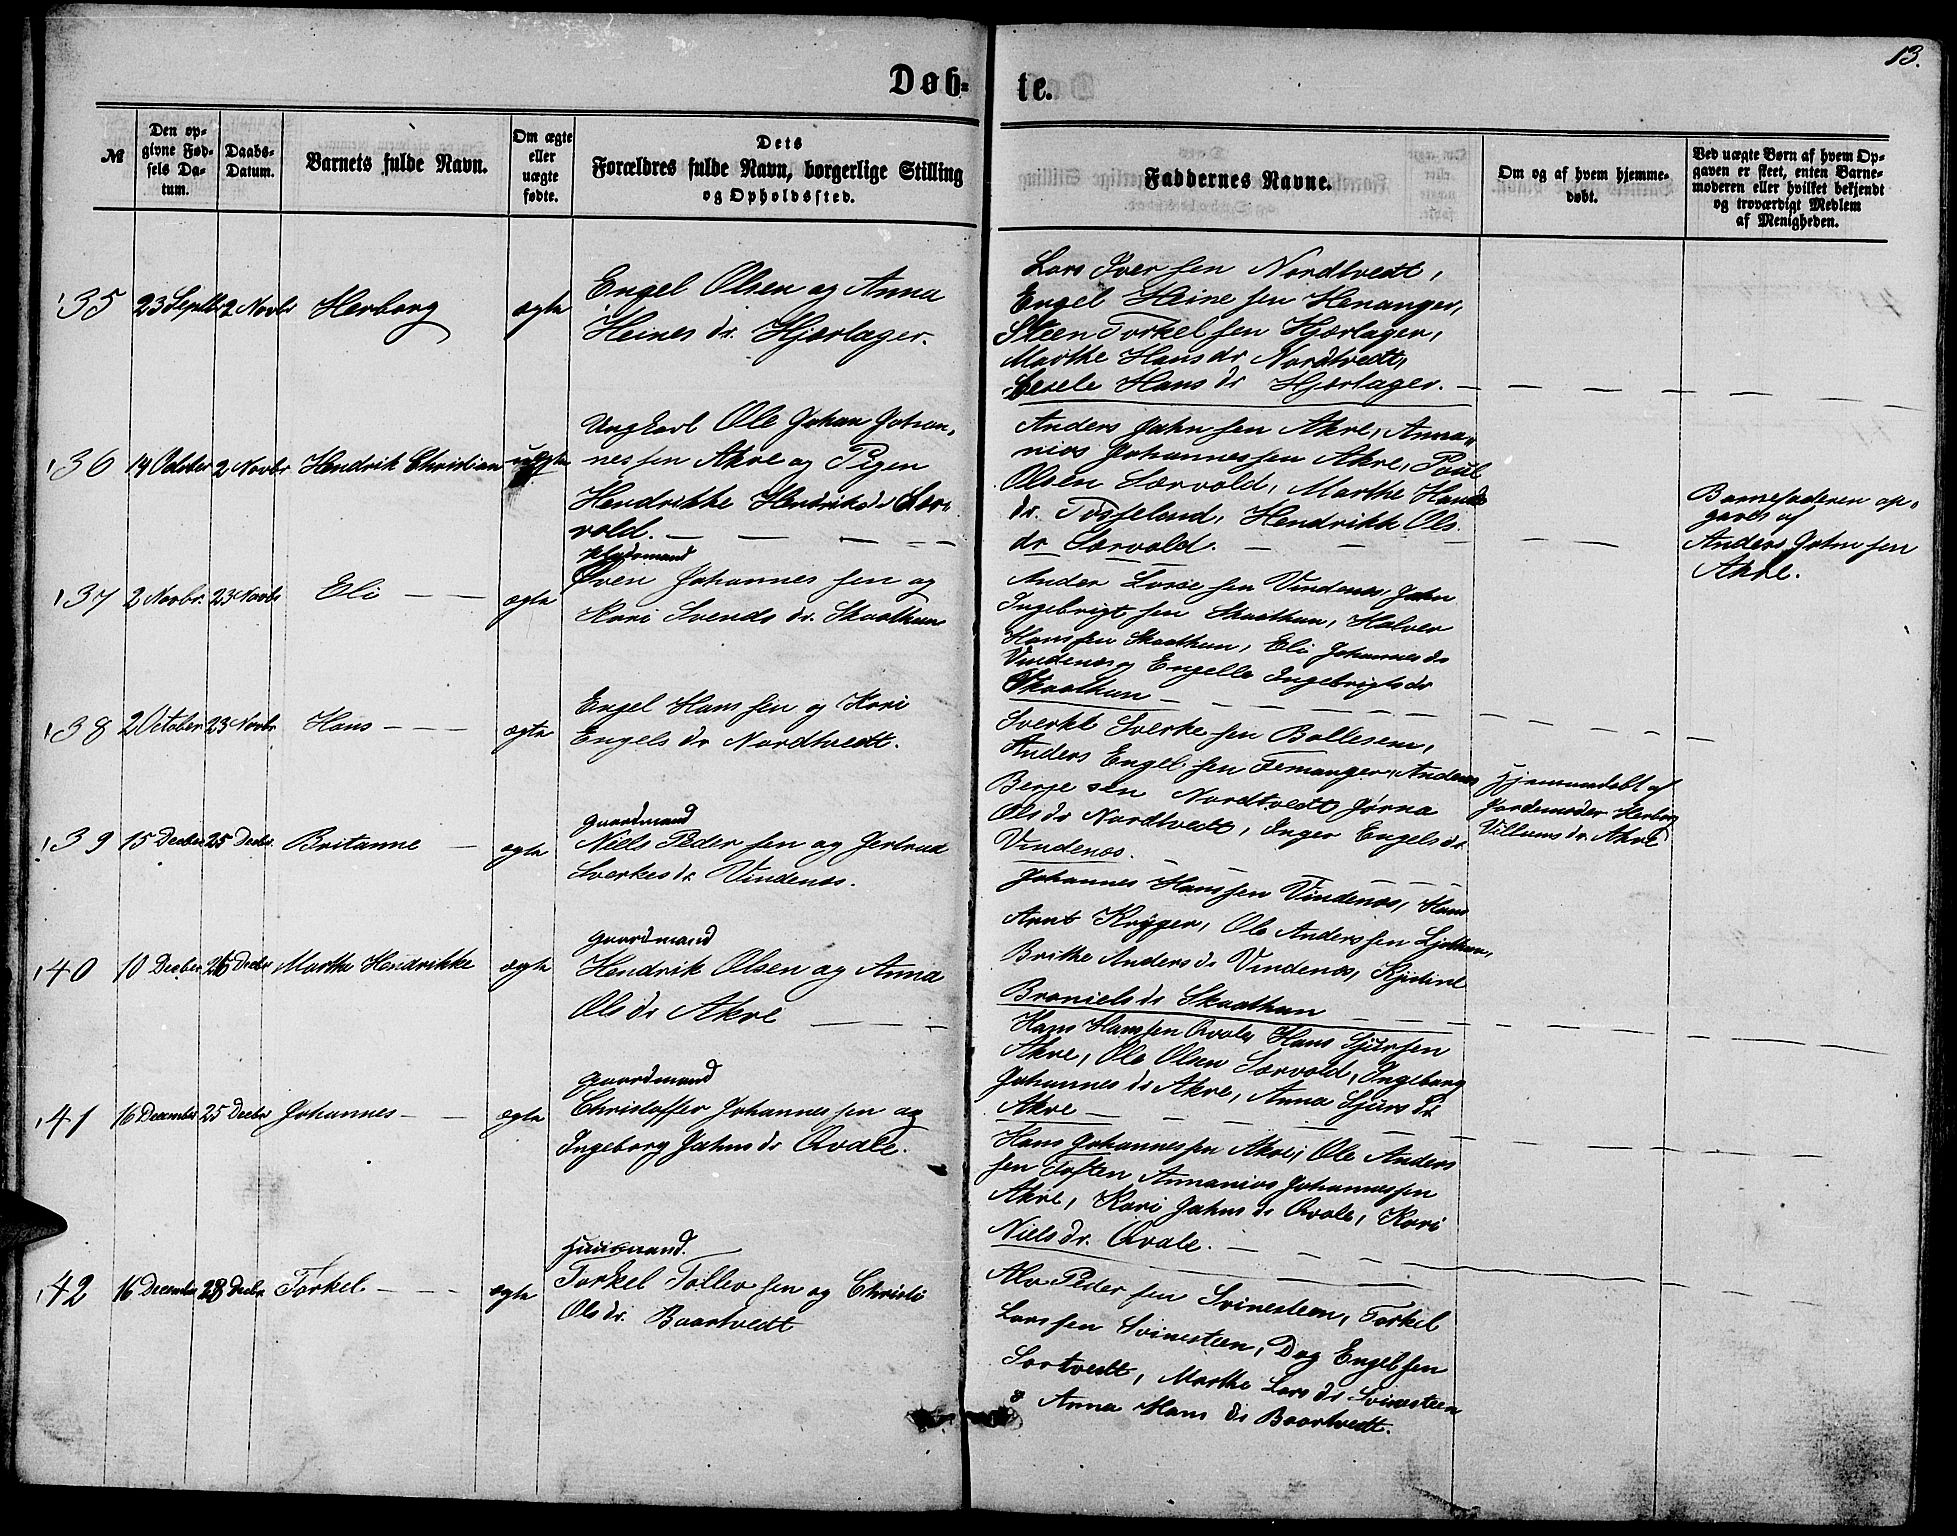 13.
Døb-
te.
№
Den op-
givne Fød-
sels Da-
tum.
Daabs-
Datum.
Barnets fulde Navn.
Om ægte
eller
uægte
fødte.
Dets
Forældres fulde Navn, borgerlige Stilling
og Opholdssted.
Faddernes Navne.
Om og af hvem hjemme-
døbt.
Ved uægte Børn af hvem Op-
gaven er skeet, enten Barne-
moderen eller hvilket bekjendt
og troværdigt Medlem
af Menigheden.
35 23 Septbr 2 Novbr Herborg ægte
Engel Olsen og Anna
Heines dr. Hjørlager.
Lars Iver sen Nordtvedt,
Engel Heine sen Henanger,
Steen Torkel sen Hjørlager,
Marthe Hans dr Nordtvedt,
Sesele Hans dr Hjørlager.
36 14 October 2 Novbr Hendrik Christian uægte
Ungkarl Ole Johan Johan-
nes sen Akre og Pigen
Hendrikke Hendriks dr Sær-
vold.
Anders Jahn sen Akre, Anna-
nias Johannes sen Akre, Poul
Olsen Særvold, Marthe Hans
dr. Tosseland, Hendrikk Ols
dr. Særvold.
Barnefaderen op-
gaves af
Anders John sen
Akre.
37 2 Novbr. 23 Novbr Eli ægte
Pladsmand
Sven Johannes sen og
Kari Svends dr. Skaathun
Ander Larse sen Vindenæs, Jahn
Ingebrigt sen Skaathun, Halver
Hans sen Skaathun, Eli Johannes dr
Vindenæs og Engelle Ingebrigts dr
Skaathun
38 2 October 23 Novbr Hans ægte
Engel Hans sen og Kari
Engels dr Nordtvedt.
Sverke Sverke sen Ballesem,
Anders Engel sen Femanger, Anders
Berje sen Nordtvedt Jørna
Ols dr Nordtvedt, Inger Engels dr
Vindenæs.
Hjemmedøbt af
Jordemoder Herborg
Villums dr. Akre
39 15 Decber 25 Decbr. Britanne ægte
Gaardmand
Niels Peder sen og Jertrud
Sverkes dr Vindenæs.
Johannes Hans sen Vindenæs, Hans
Arnt Krÿger, Ole Anders sen Ljothun,
Brithe Anders dr Vindenæs, Kjistine
Broniels dr Skaathun
40 10 Decber 26 Decbr Marthe Hendrikke ægte
Gaardmand
Hendrik Olsen og Anna
Ols dr Akre
Hans Hans sen Qvale, Hans Sjur sen
Akre, Ole Olsen Særvold, Ingeborg
Johannes dr Akre, Anna Sjurs dr
Akre
41 16 December 25 Decbr Johannes ægte
Gaardmand
Christoffer Johannes sen og
Ingeborg Jahns dr Qvale.
Hans Johannes sen Akre, Ole Anders
sen Toften Annanias Johannes sen
Akre, Kari Jahns dr Qvale, Kari
Niels dr. Qvale.
42 16 December 28 Decbr Torkel. ægte
Huusmand.
Torkel Tollev sen og Christi
Ols dr. Baartvedt
Alv Peder sen Svinesteen, Torkel
Lars sen Svinesteen, Dag Engel sen
Sortvedt, Marthe Lars dr Svinesteen
& Anna Hans dr Baartvedt.